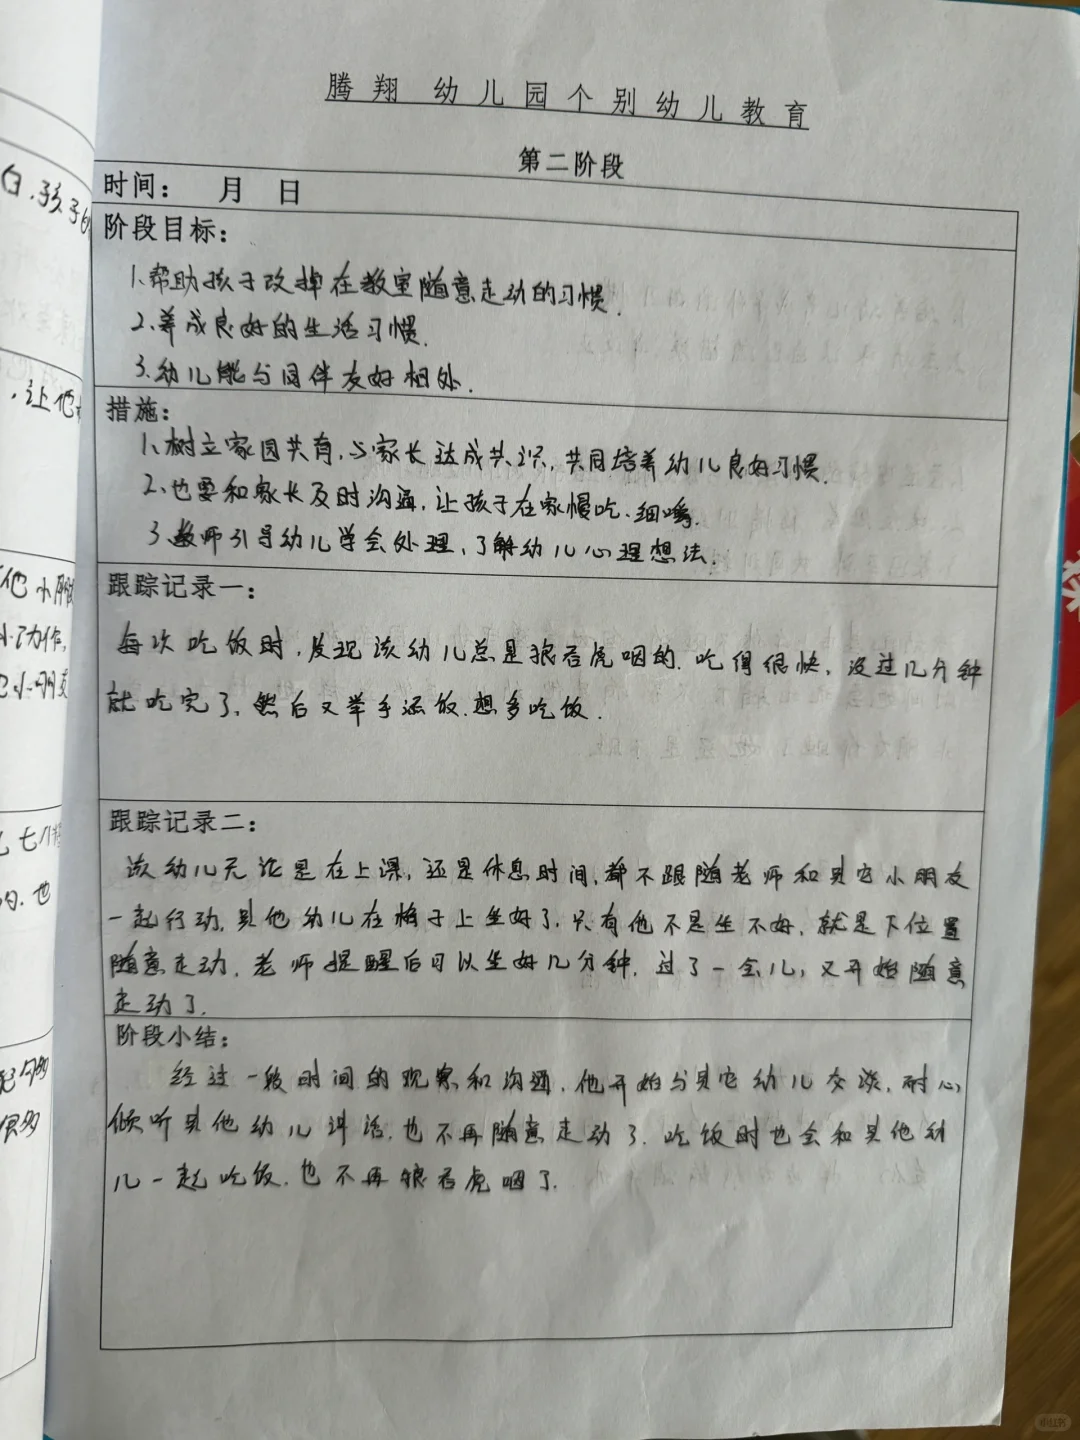 腾翔 幼儿园个别幼儿教育
第二阶段
时间： 月 日
阶段目标：
1、帮助孩子改掉在教室随意走动的习惯.
2、养成良好的生活习惯.
3、幼儿能与同伴友好相处.
措施：
1、树立家园共育,与家长达成共识,共同培养幼儿良好习惯.
2、也要和家长及时沟通,让孩子在家慢吃、细嚼.
3、教师引导幼儿学会处理,了解幼儿心理想法.
跟踪记录一：
每次吃饭时,发现该幼儿总是狼吞虎咽的.吃得很快,没过几分钟
就吃完了,然后又举手添饭.想多吃饭.
跟踪记录二：
该幼儿无论是在上课,还是休息时间,都不跟随老师和其它小朋友
一起行动,其他幼儿在椅子上坐好了.只有他不是坐不好,就是下位置
随意走动.老师提醒后可以坐好几分钟.过了一会儿,又开始随意
走动了.
阶段小结：
经过一段时间的观察和沟通.他开始与其它幼儿交谈,耐心
倾听其他幼儿讲话.也不再随意走动了.吃饭时也会和其他幼
儿一起吃饭.也不再狼吞虎咽了.
白.孩子的
,让他
他小朋
小动作,
小朋友
七八
也
很多
小红书